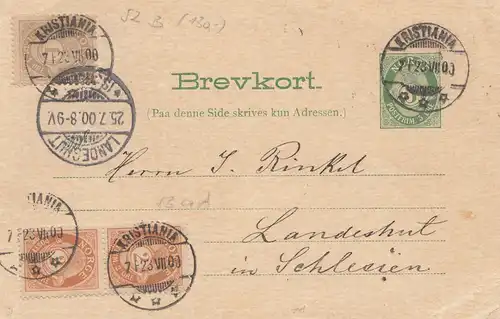 52 B (130,-)
KRISTIANIA
7 1 23 VII 00
KRISTIANIA
7 1 23 VII 00
Brevkort.
(Paa denne Side skrives kun Adressen.)
NORGE
POSTFRIM.
LANDESHUT
25.7.00.8-9V.
(SCHLES)
Herrn J. Rinkel
Landeshut
in Schlesien
KRISTIANIA
7 1 23 VII 00
KRISTIANIA
7 1 23 VII 00
NORGE